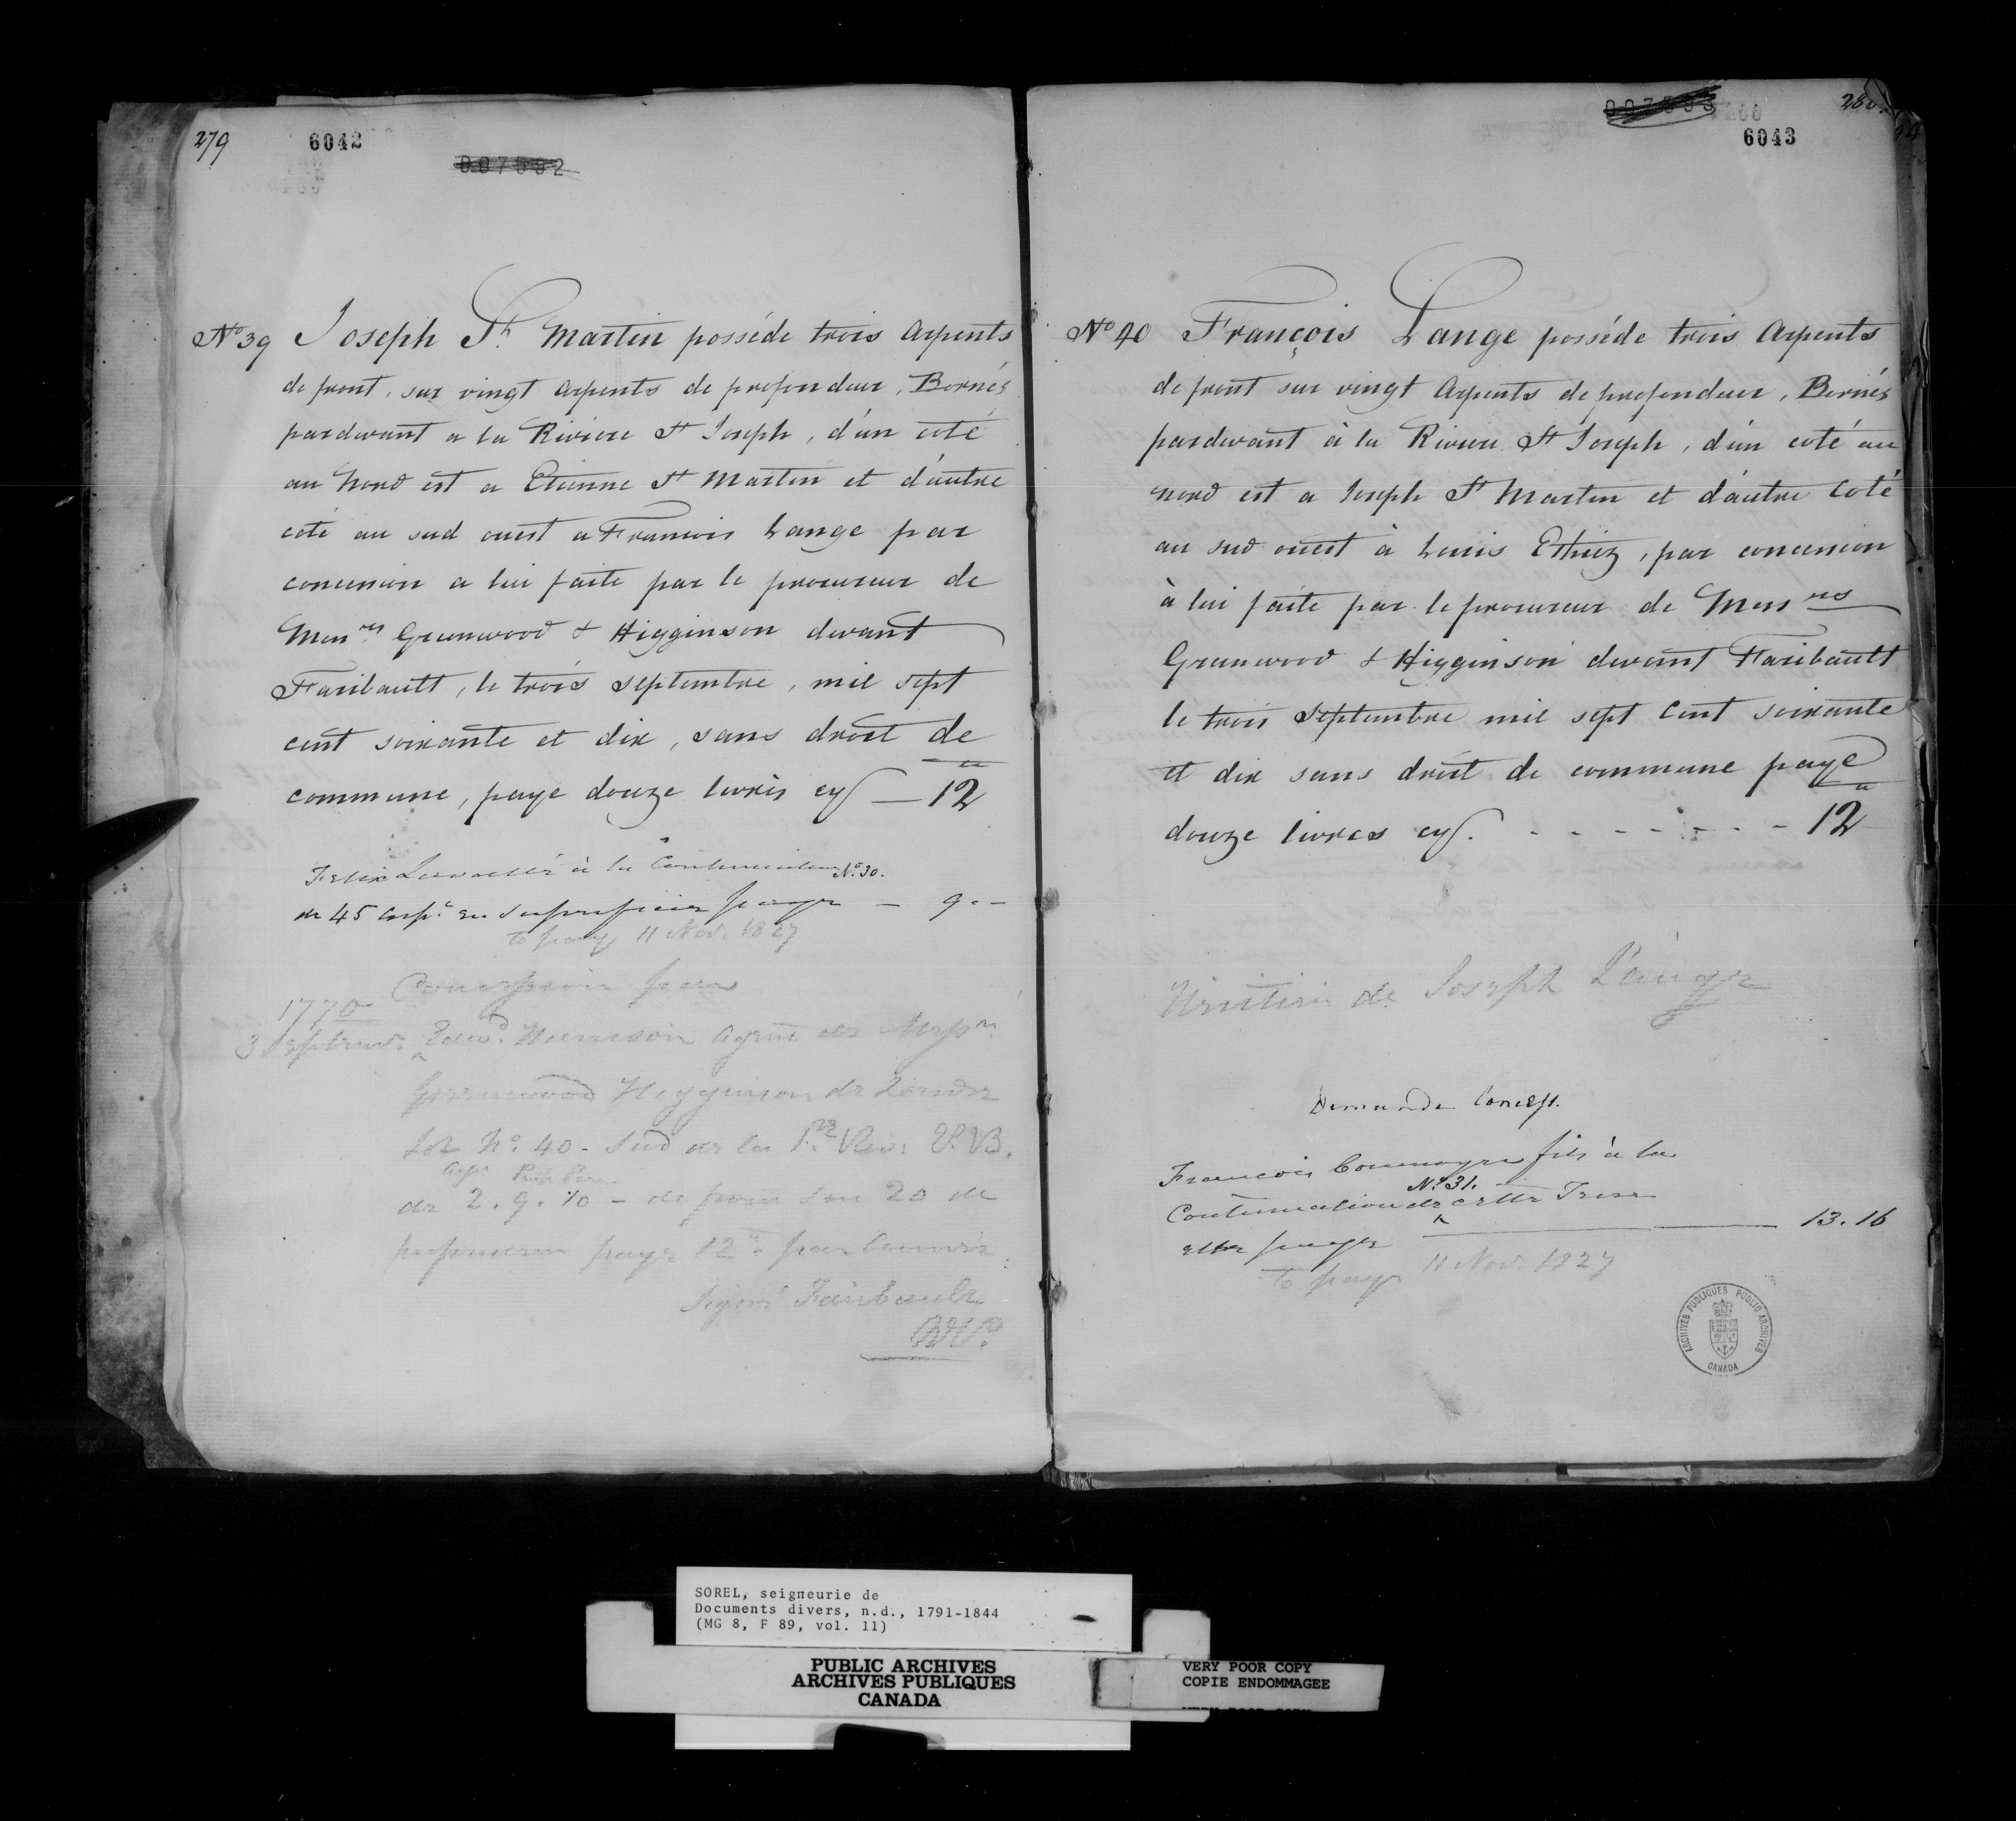 279
6042
007592
N.o 39 Joseph St. Martin posséde trois arpents
de front, sur vingt arpents de profondeur, Bornés
pardevant a la Riviere St Joseph, d'un coté
au Nord est a Etienne St Martin et d'autre
coté au sud ouest a Francois Lange par
concession a lui faite par le procureur de
Mess.rs Greenwood & Higginson devant
Faribault, le trois septembre, mil sept
cent soixante et dix, sans droit de
commune, paye douze livres cy — 12
à la Continuation No. 30.
de 45 arp.s en superficie paye — 9 . –
to pay 11 Nov. 1827
1770 Concession par
3 Septemb.
Greenwood Higginson de Londre
No. 40 - Sud de la 1.re
de 2. 9. 10 - de front sur 20 de
paye 12
Faribault
007593
280
6043
No 40 François Lange posséde trois arpents
de front sur vingt arpents de profondeur, Bornés
pardevant à la Riviere St Joseph, d'un coté au
nord est a Joseph St Martin et d'autre coté
au sud ouest à Louis, par concession
à lui faite par le procureur de Mess.rs
Greenwood & Higginson devant Faribault
le trois septembre mil sept cent soixante
et dix sans droit de commune paye
douze livres cy. - - - - - - - 12
de Joseph L'ange
Demande Concess.
Francois fils à la
No. 31.
Continuation de cette Terre
paye — 13. 16
to pay 11 Nov. 1827
ARCHIVES PUBLIQUES PUBLIC ARCHIVES
CANADA
SOREL, seigneurie de
Documents divers, n.d., 1791-1844
(MG 8, F 89, vol. 11)
PUBLIC ARCHIVES
ARCHIVES PUBLIQUES
CANADA
VERY POOR COPY
COPIE ENDOMMAGEE
VERY POOR COPY